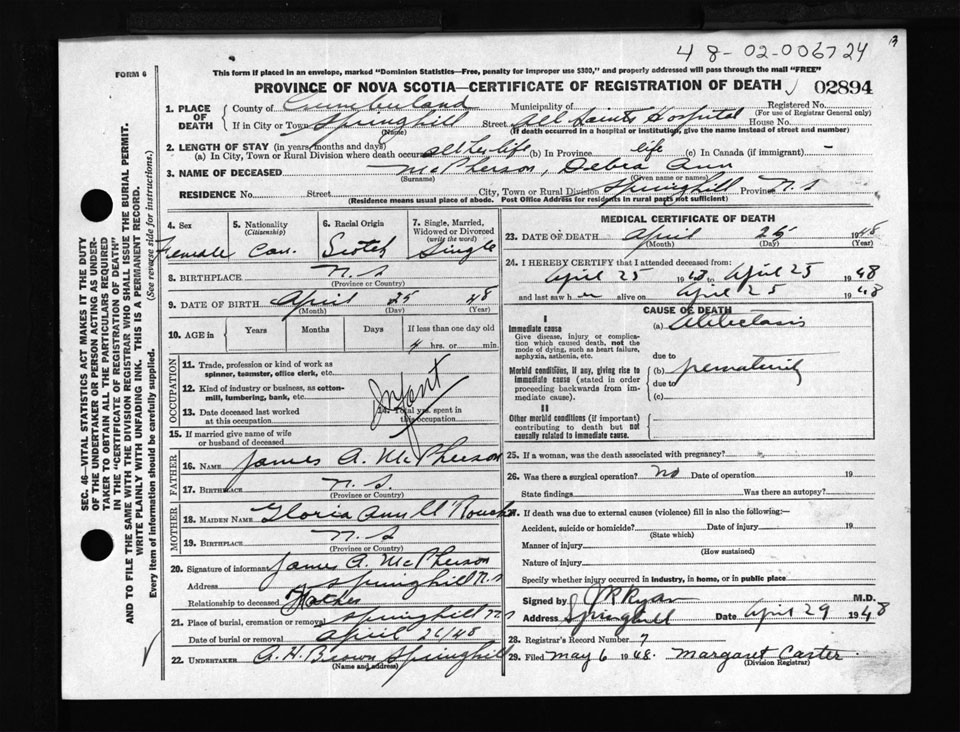 48-02-006724
FORM 6
This form if placed in an envelope, marked "Dominion Statistics—Free, penalty for improper use $300," and properly addressed will pass through the mail "FREE"
PROVINCE OF NOVA SCOTIA—CERTIFICATE OF REGISTRATION OF DEATH 02894
SEC. 46—VITAL STATISTICS ACT MAKES IT THE DUTY
OF THE UNDERTAKER OR PERSON ACTING AS UNDER-
TAKER TO OBTAIN ALL THE PARTICULARS REQUIRED
IN THE "CERTIFICATE OF REGISTRATION OF DEATH"
AND TO FILE THE SAME WITH THE DIVISION REGISTRAR WHO SHALL ISSUE THE BURIAL PERMIT.
WRITE PLAINLY WITH UNFADING INK. THIS IS A PERMANENT RECORD.
Every item of information should be carefully supplied. (See reverse side for instructions.)
1. PLACE OF DEATH County of Cumberland Municipality of Registered No.
(For use of Registrar General only)
If in City or Town Springhill Street All Saints Hospital House No.
(Name) (If death occurred in a hospital or institution, give the name instead of street and number)
2. LENGTH OF STAY (in years, months and days)
(a) In City, Town or Rural Division where death occurred all her life (b) In Province life (c) In Canada (if immigrant) -
3. NAME OF DECEASED McPherson, Debra Ann
(Surname) (Given name or names)
RESIDENCE No. Street City, Town or Rural Division Springhill Province N.S
(Residence means usual place of abode. Post Office Address for residents in rural parts not sufficient)
4. Sex 5. Nationality (Citizenship) 6. Racial Origin 7. Single, Married, Widowed or Divorced (write the word)
Female Can. Scotch Single
8. BIRTHPLACE N.S
(Province or Country)
9. DATE OF BIRTH April 25 48
(Month) (Day) (Year)
10. AGE in Years Months Days If less than one day old
4 hrs. or min.
OCCUPATION
11. Trade, profession or kind of work as
spinner, teamster, office clerk, etc.
12. Kind of industry or business, as cotton-
mill, lumbering, bank, etc.
Infant
13. Date deceased last worked
at this occupation
14. Total yrs. spent in
this occupation
15. If married give name of wife
or husband of deceased
FATHER
16. NAME James A. McPherson
17. BIRTHPLACE N.S.
(Province or Country)
MOTHER
18. MAIDEN NAME Gloria Ann
19. BIRTHPLACE N.S
(Province or Country)
20. Signature of informant James A. McPherson
Address Springhill N.S
Relationship to deceased Father
21. Place of burial, cremation or removal Springhill N.S
Date of burial or removal April 26/48
22. UNDERTAKER A. H. Brown Springhill
(Name and address)
MEDICAL CERTIFICATE OF DEATH
23. DATE OF DEATH April 25 1948
(Month) (Day) (Year)
24. I HEREBY CERTIFY that I attended deceased from:
April 25 19 to April 25 1948
and last saw her alive on April 25 1948
CAUSE OF DEATH
I
Immediate cause
Give disease, injury or complica-
tion which caused death, not the
mode of dying, such as heart failure,
asphyxia, asthenia, etc.
(a)
due to
Morbid conditions, if any, giving rise to
immediate cause (stated in order
proceeding backwards from im-
mediate cause).
(b)
due to
(c)
II
Other morbid conditions (if important)
contributing to death but not
causally related to immediate cause.
25. If a woman, was the death associated with pregnancy?
26. Was there a surgical operation? No Date of operation 19
State findings Was there an autopsy?
27. If death was due to external causes (violence) fill in also the following:—
Accident, suicide or homicide? Date of injury 19
(State which)
Manner of injury
(How sustained)
Nature of injury
Specify whether injury occurred in industry, in home, or in public place
Signed by J R Ryan M.D.
Address Springhill Date April 29 1948
28. Registrar's Record Number 7
29. Filed May 6 1948. Margaret Carter
(Division Registrar)